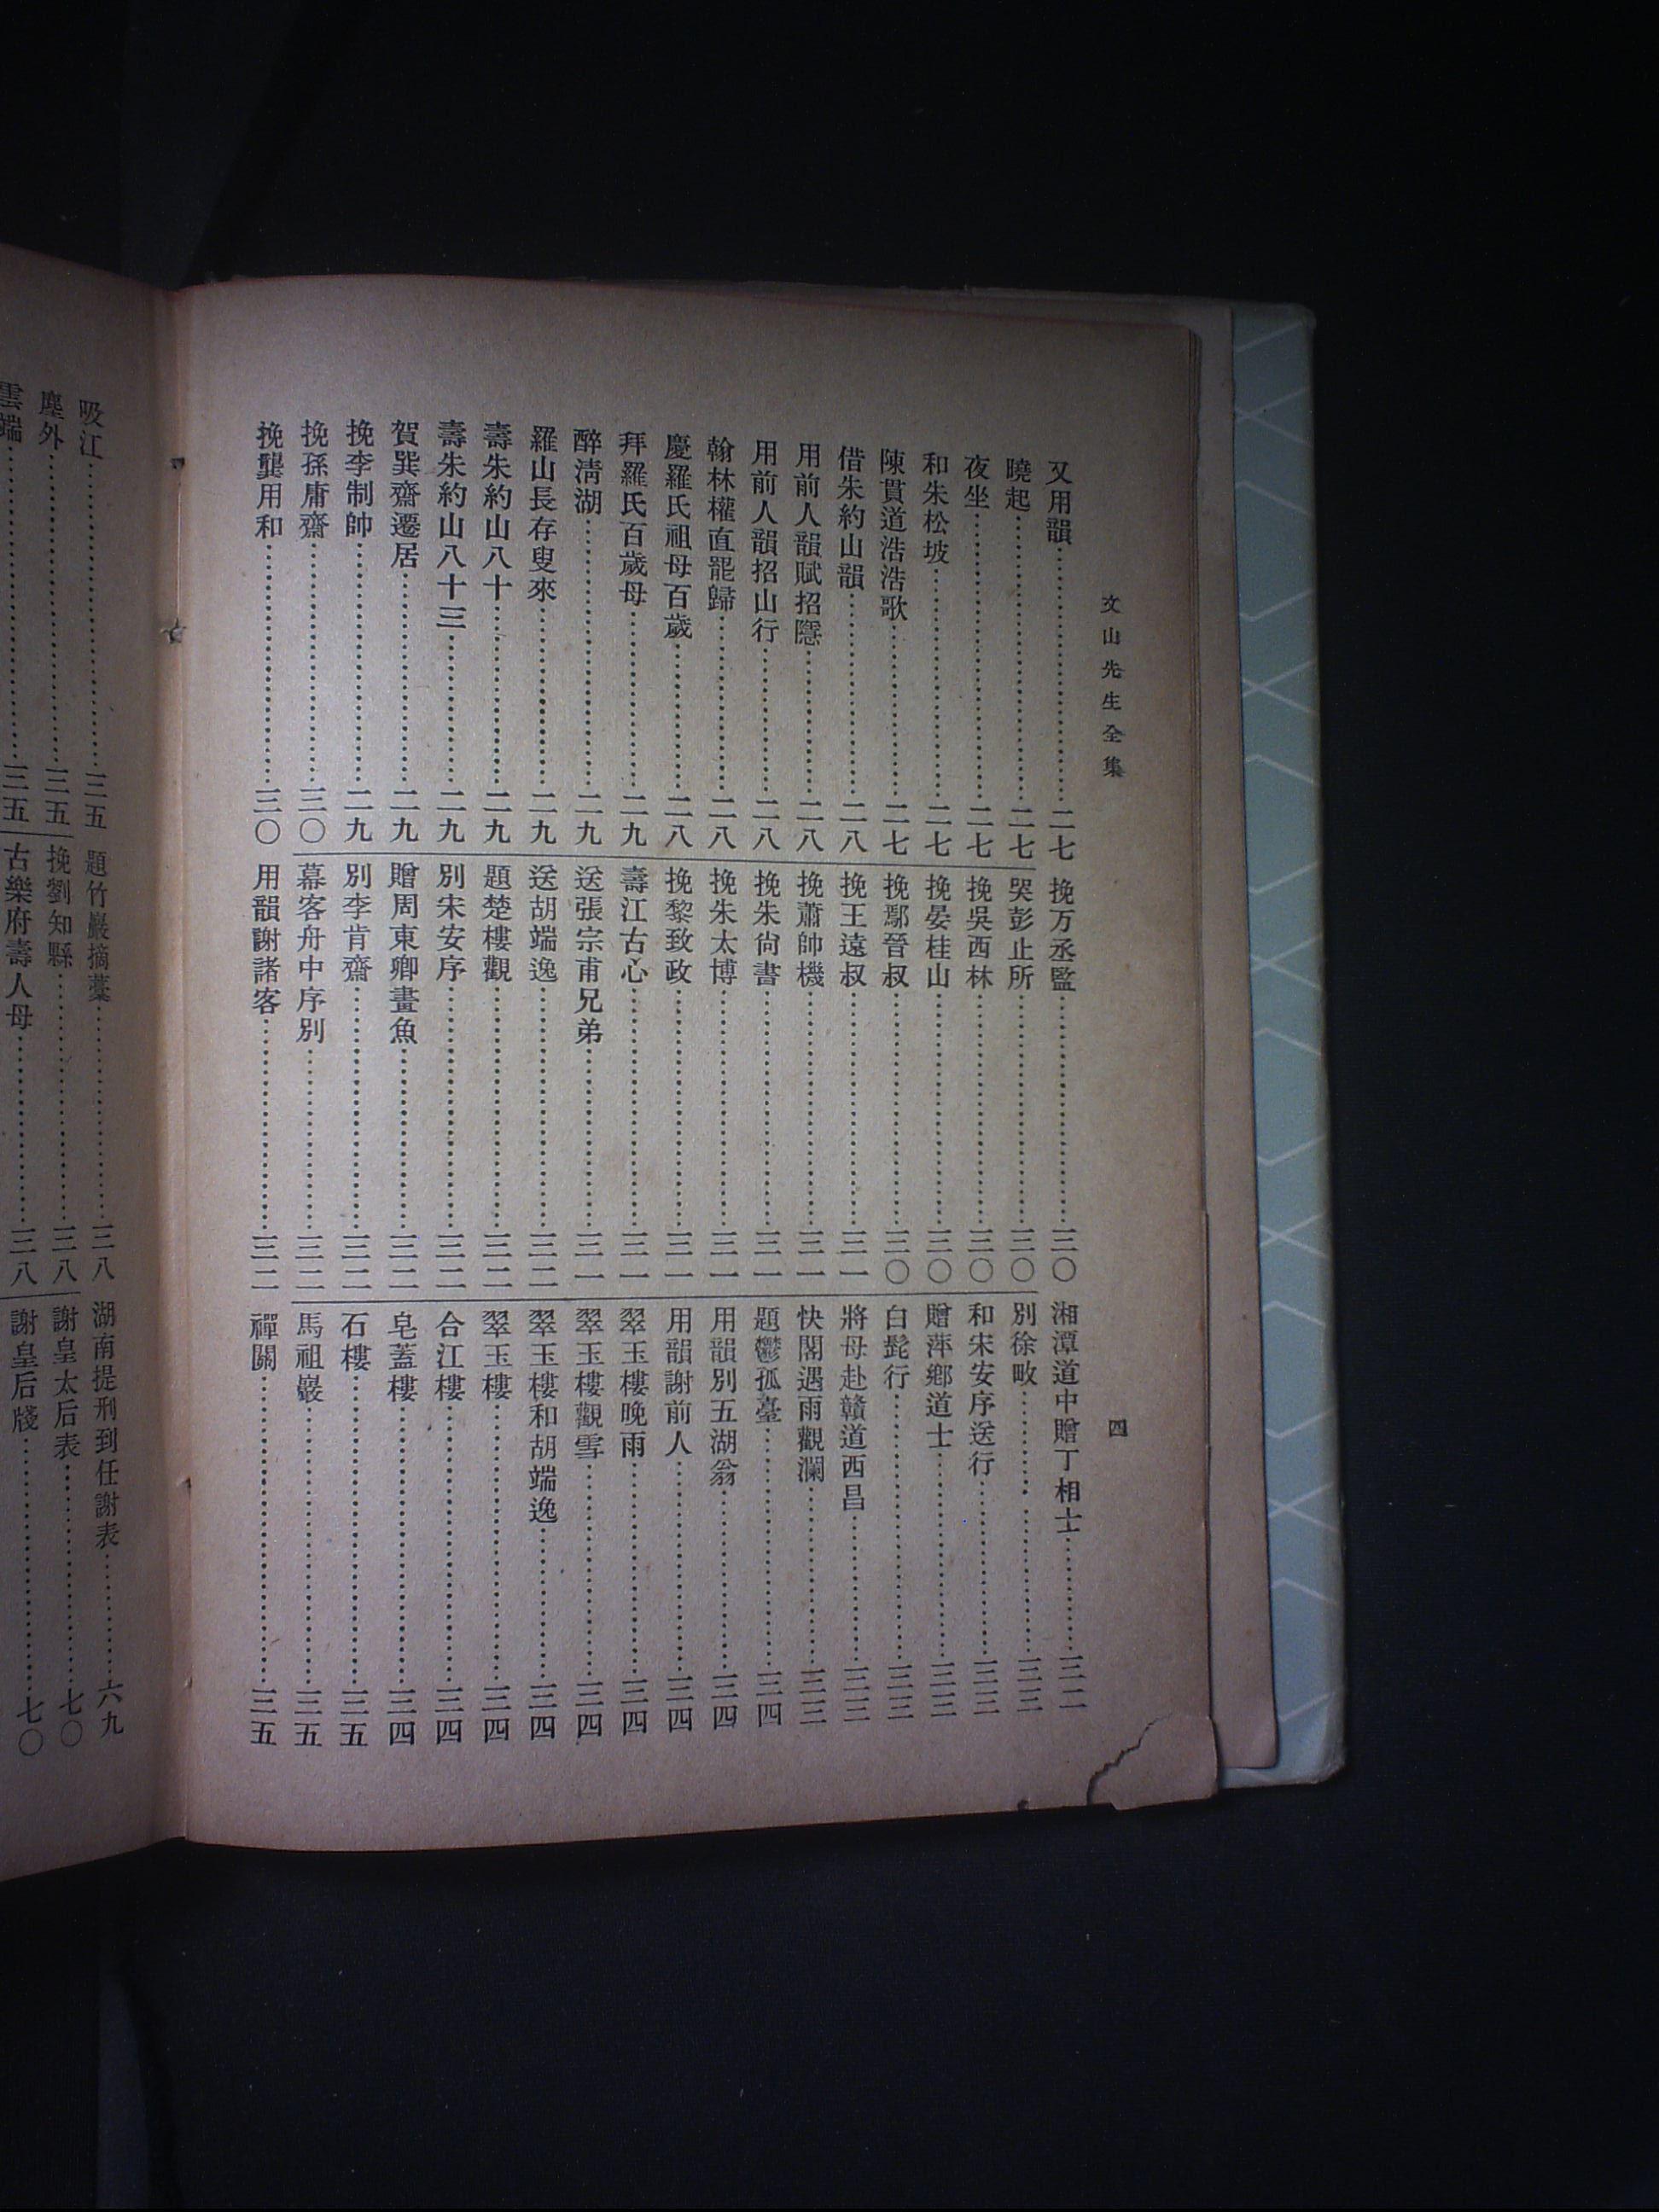 文山先生全集
四
又用韻……二七
曉起……二七
夜坐……二七
和朱松坡……二七
陳貫道浩浩歌……二七
借朱約山韻……二八
用前人韻賦招隱……二八
用前人韻招山行……二八
翰林權直罷歸……二八
慶羅氏祖母百歲……二八
拜羅氏百歲母……二九
醉清湖……二九
羅山長存叟來……二九
壽朱約山八十……二九
壽朱約山八十三……二九
賀巽齋遷居……二九
挽李制帥……二九
挽孫庸齋……三〇
挽龔用和……三〇
挽万丞監……三〇
哭彭止所……三〇
挽吳西林……三〇
挽晏桂山……三〇
挽鄢晉叔……三〇
挽王遠叔……三一
挽蕭帥機……三一
挽朱尚書……三一
挽朱太博……三一
挽黎致政……三一
壽江古心……三一
送張宗甫兄弟……三一
送胡端逸……三二
題楚樓觀……三二
別宋安序……三二
贈周東卿畫魚……三二
別李肯齋……三二
幕客舟中序別……三二
用韻謝諸客……三二
湘潭道中贈丁相士……三二
別徐畋……三三
和宋安序送行……三三
贈萍鄉道士……三三
白髭行……三三
將母赴贛道西昌……三三
快閣遇雨觀瀾……三三
題鬱孤臺……三四
用韻別五湖翁……三四
用韻謝前人……三四
翠玉樓晚雨……三四
翠玉樓觀雪……三四
翠玉樓和胡端逸……三四
翠玉樓……三四
合江樓……三四
皂蓋樓……三四
石樓……三五
馬祖巖……三五
禪關……三五
吸江……三五
塵外……三五
雲端……三五
題竹巖摘藁……三八
挽劉知縣……三八
古樂府壽人母……三八
湖南提刑到任謝表……六九
謝皇太后表……七〇
謝皇后牋……七〇